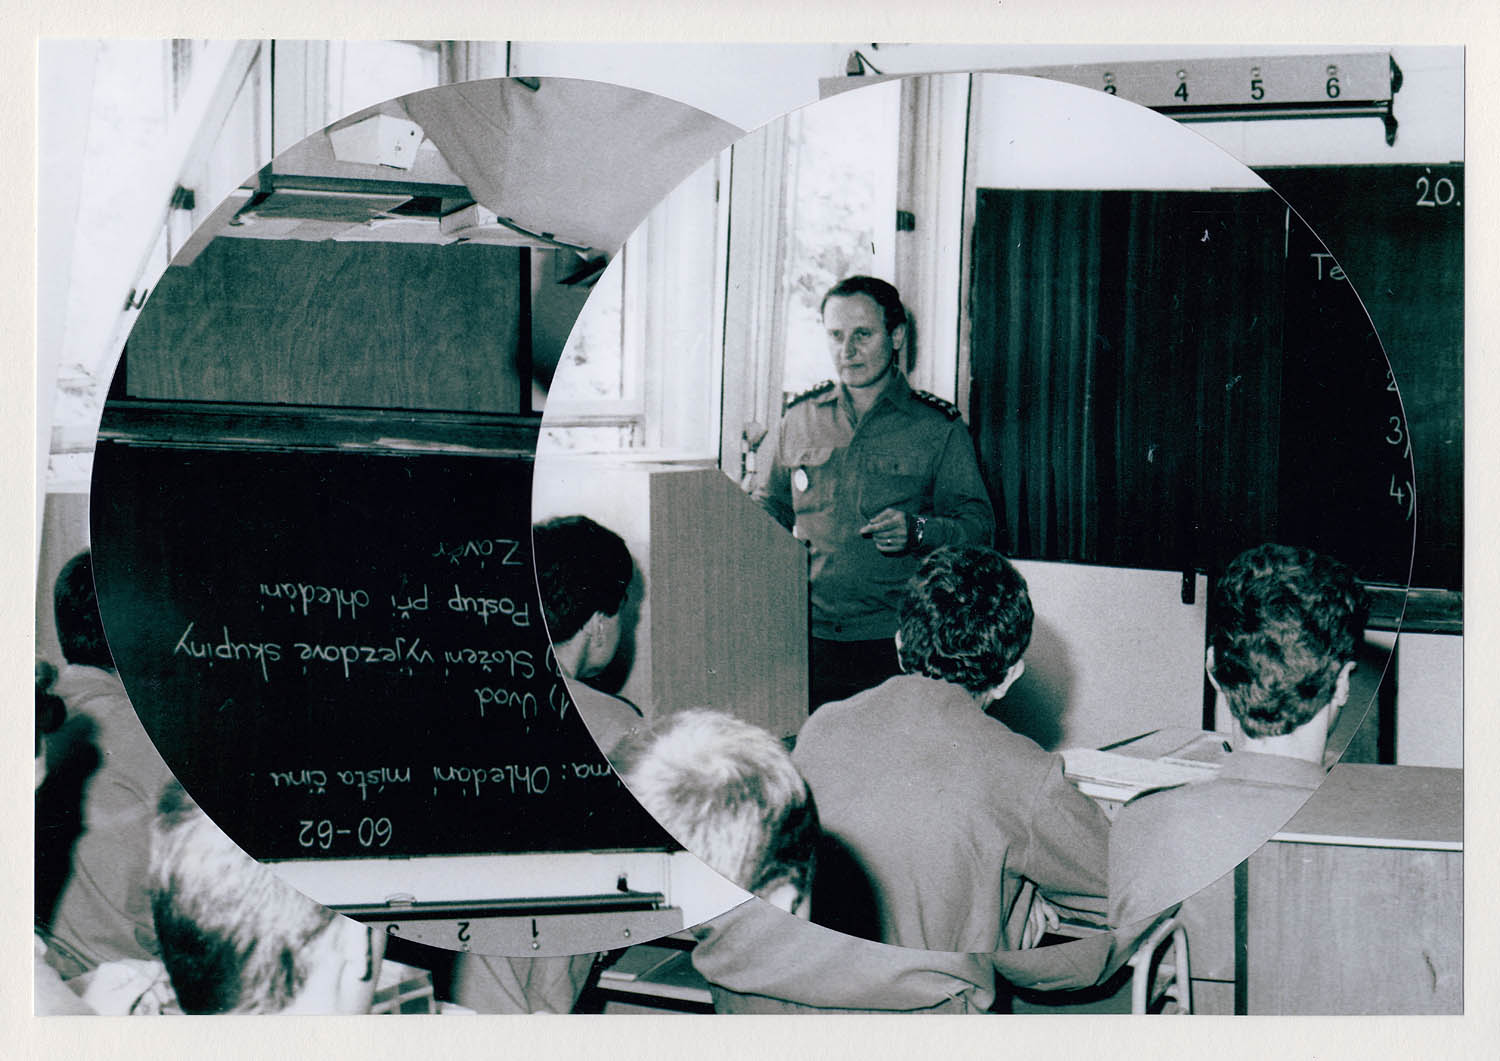 3 4 5 6
20.
Te
2
3)
4)
60-62
ma: Ohledání místa činu
1) Úvod
) Složení výjezdové skupiny
Postup při ohledání
Závěr
1 2 3